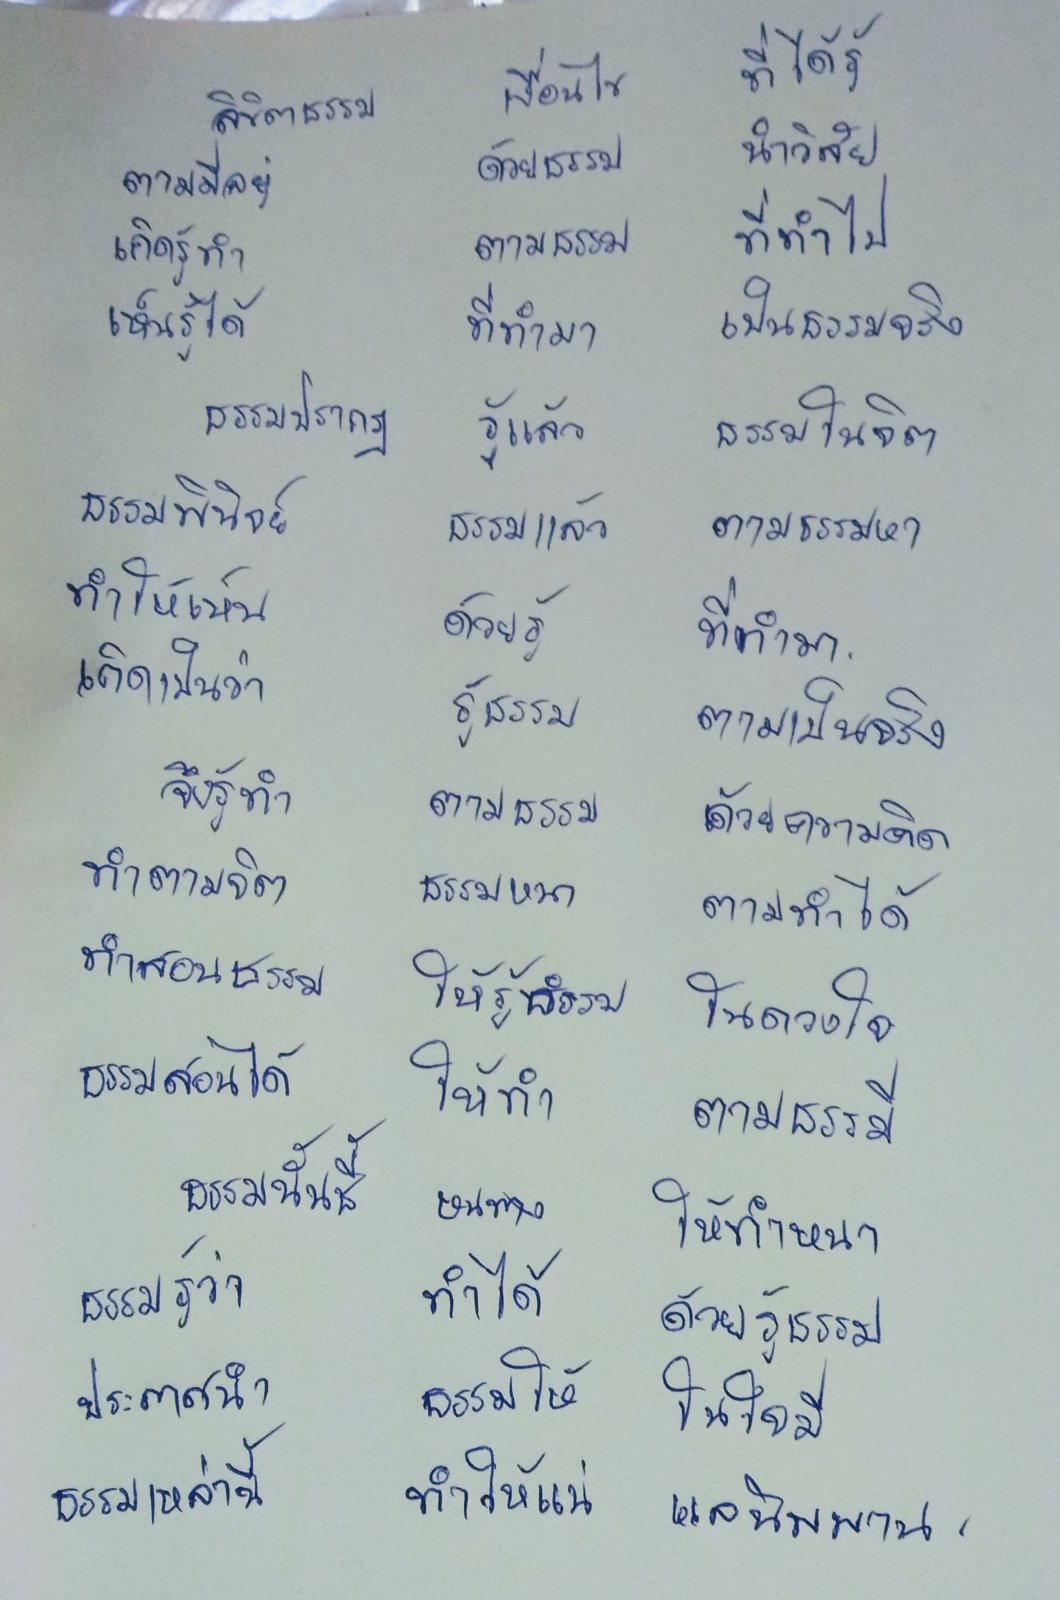 ลิขิตธรรม เงื่อนไข ที่ได้รู้
ตามมีอยู่ ด้วยธรรม นำวิสัย
เกิดรู้ทำ ตามธรรม ที่ทำไป
เห็นรู้ได้ ที่ทำมา เป็นธรรมจริง
ธรรมปรากฏ รู้แล้ว ธรรมในจิต
ธรรมพินิจย์ ธรรมแล้ว ตามธรรมหา
ทำให้เห็น ด้วยรู้ ที่ทำมา.
เกิดเป็นว่า รู้ธรรม ตามเป็นจริง
จึงรู้ทำ ตามธรรม ด้วยความคิด
ทำตามจิต ธรรมหนา ตามทำได้
ทำสอนธรรม ให้รู้ธรรม ในดวงใจ
ธรรมสอนได้ ให้ทำ ตามธรรมมี
ธรรมนั้นชี้ หนทาง ให้ทำหนา
ธรรมรู้ว่า ทำได้ ด้วยรู้ธรรม
ประกาศนำ ธรรมให้ ในใจมี
ธรรมเหล่านี้ ทำให้แน่ แลนิพพาน.